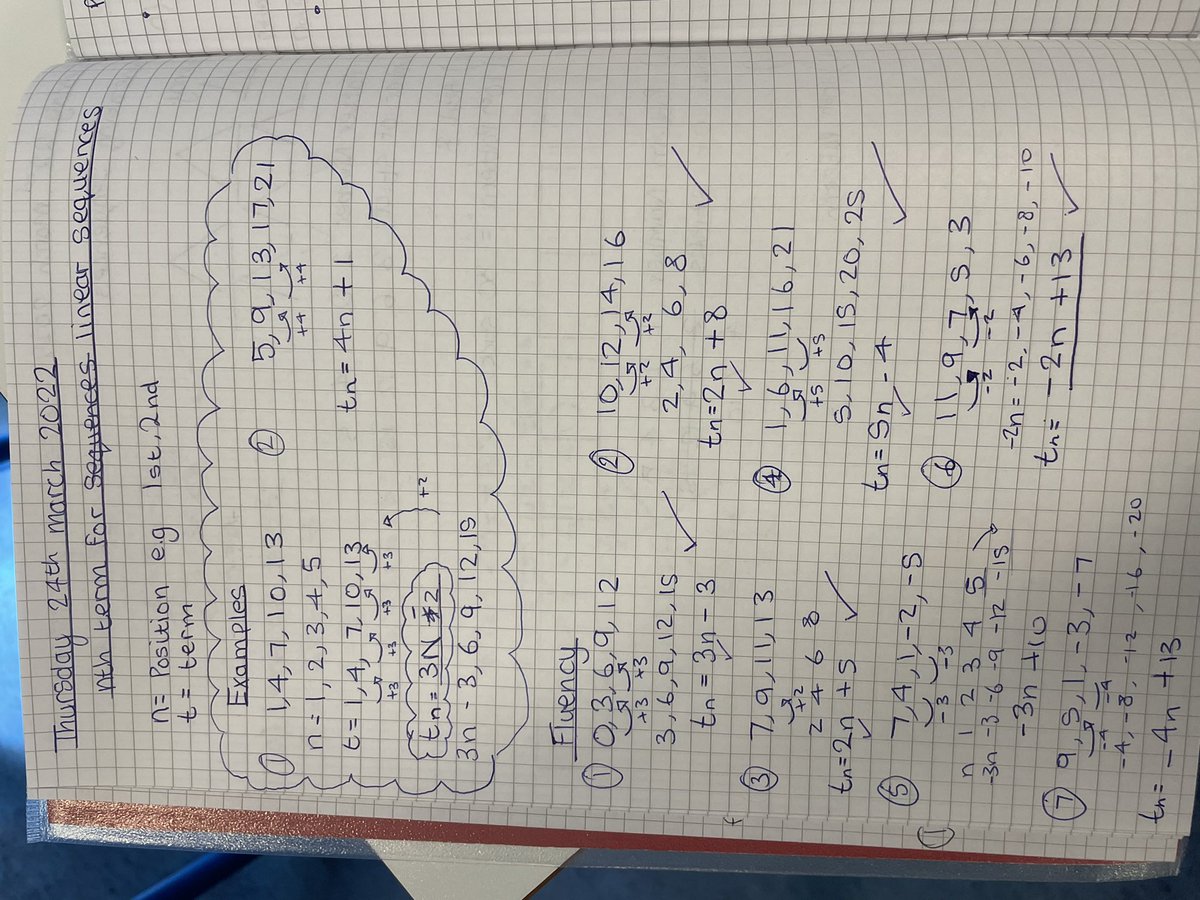 Thursday 24th march 2022
nth term for sequences linear sequences
n= Position e.g 1st, 2nd
t = term
Examples
① 1,4,7,10,13
n = 1, 2, 3, 4, 5
t = 1, 4, 7, 10, 13
+3 +3 +3 +3
tn = 3N - 2
+2
3n - 3, 6, 9, 12, 15
② 5,9,13,17,21
+4 +4
tn = 4n + 1
Fluency
① 0,3,6,9,12
+3 +3
3,6,9,12,15
tn = 3n - 3
② 10,12,14,16
+2 +2
2,4,6,8
tn=2n + 8
③ 7,9,11,13
+2
2 4 6 8
tn=2n +5
④ 1,6,11,16,21
+5 +5
5,10,15,20,25
tn=5n - 4
⑤ 7,4,1,-2,-5
-3 -3
n 1 2 3 4 5
-3n -3 -6 -9 -12 -15
-3n +10
⑥ 11,9,7,5,3
-2 -2
-2n= -2, -4, -6, -8, -10
tn= -2n +13
⑦ 9,5,1,-3,-7
-4 -4
-4, -8, -12, -16, -20
tn= -4n +13